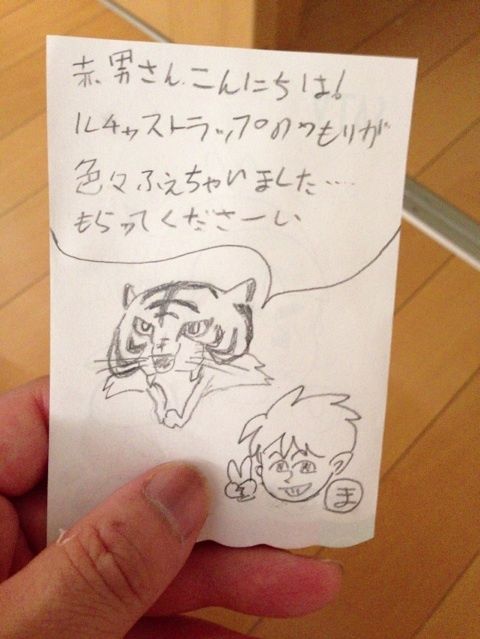 赤男さん、こんにちは!
ルチャストラップのつもりが
色々ふえちゃいました……
もらってくださーい
ま